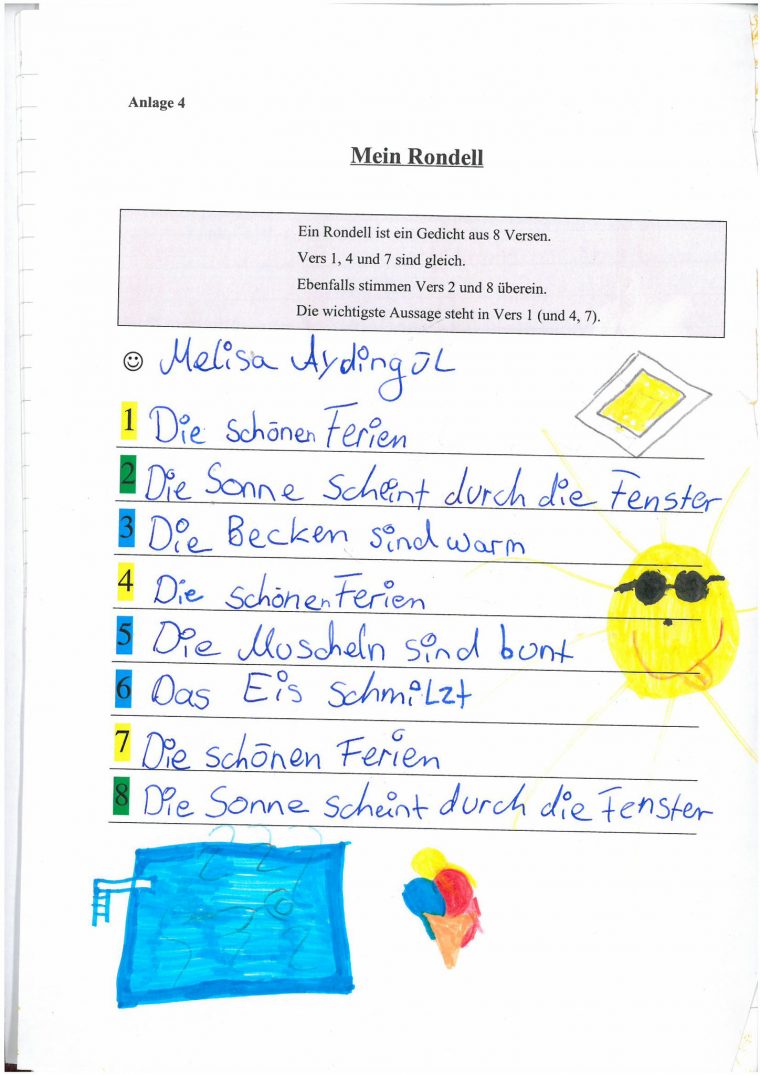 Anlage 4
Mein Rondell
Ein Rondell ist ein Gedicht aus 8 Versen.
Vers 1, 4 und 7 sind gleich.
Ebenfalls stimmen Vers 2 und 8 überein.
Die wichtigste Aussage steht in Vers 1 (und 4, 7).
☺ Melisa Aydingül
1 Die schönen Ferien
2 Die Sonne scheint durch die Fenster
3 Die Becken sind warm
4 Die schönen Ferien
5 Die Muscheln sind bunt
6 Das Eis schmilzt
7 Die schönen Ferien
8 Die Sonne scheint durch die Fenster